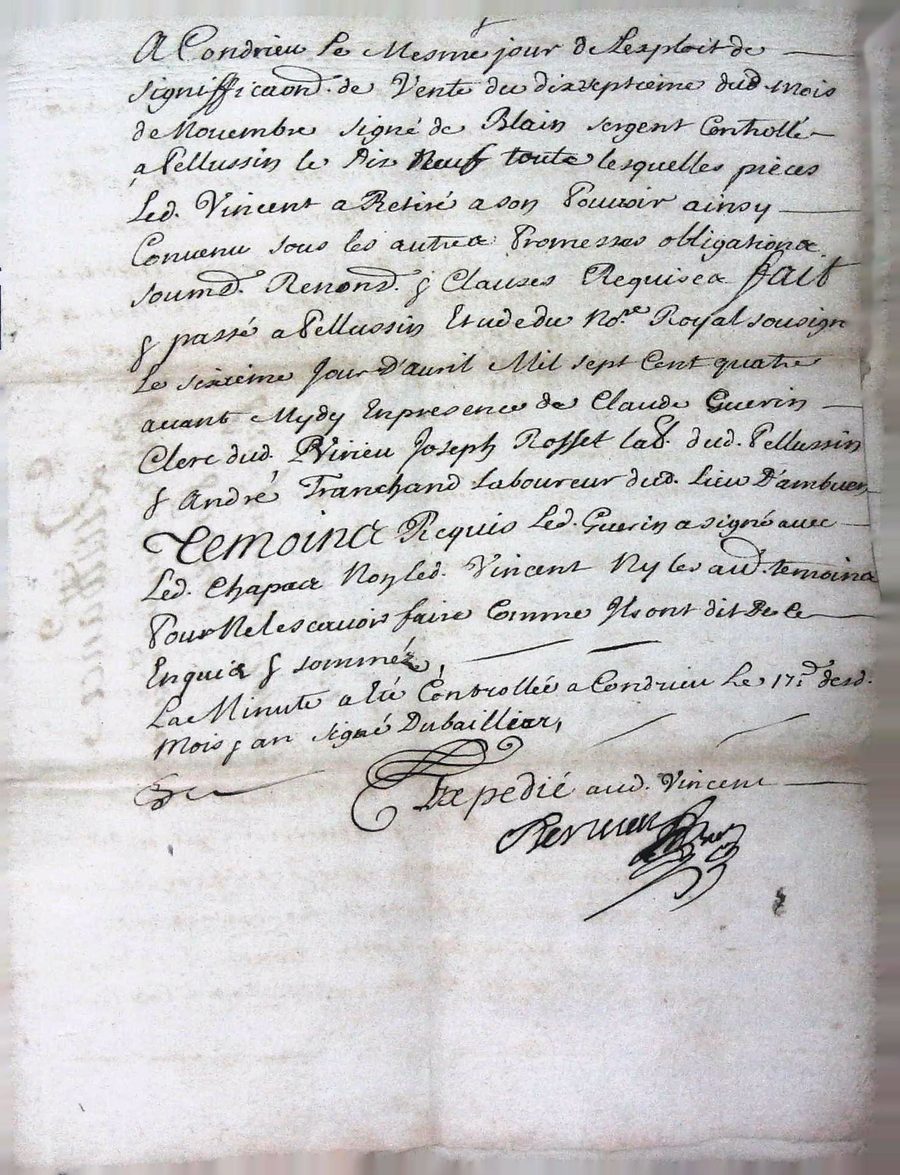 A Condrieu Le Mesme jour de Lexploit de
signifficaond. de Vente du dixseptieme dud mois
de Novembre signé de Blain sergent Controllé
a Pellussin le Dix Neuf toute lesquelles pièces
Led. Vincent a Retiré a son Pouvoir ainsy
Convenu sous les autres Promesses obligations
soumd. Renond. & Clauses Requises fait
& passé a Pellussin Etude du No.re Royal sousign
Le sixieme Jour D'avril Mil sept Cent quatre
avant Mydy En presence de Claude Guerin
Clerc dud. Virieu Joseph Rosset lab.r dud. Pellussin
& André Tranchand Laboureur dud. Lieu D'ambuen
Temoins Requis Led. Guerin a signé avec
Led. Chapas Non Led. Vincent Ny les aud. temoins
Pour Ne le scavoir faire Comme Ils ont dit De Ce
Enquis & sommés,
La Minute a Eté Controllée a Condrieu Le 17.e desd.
Mois & an signé Dubaillier,
Expedié aud. Vincent